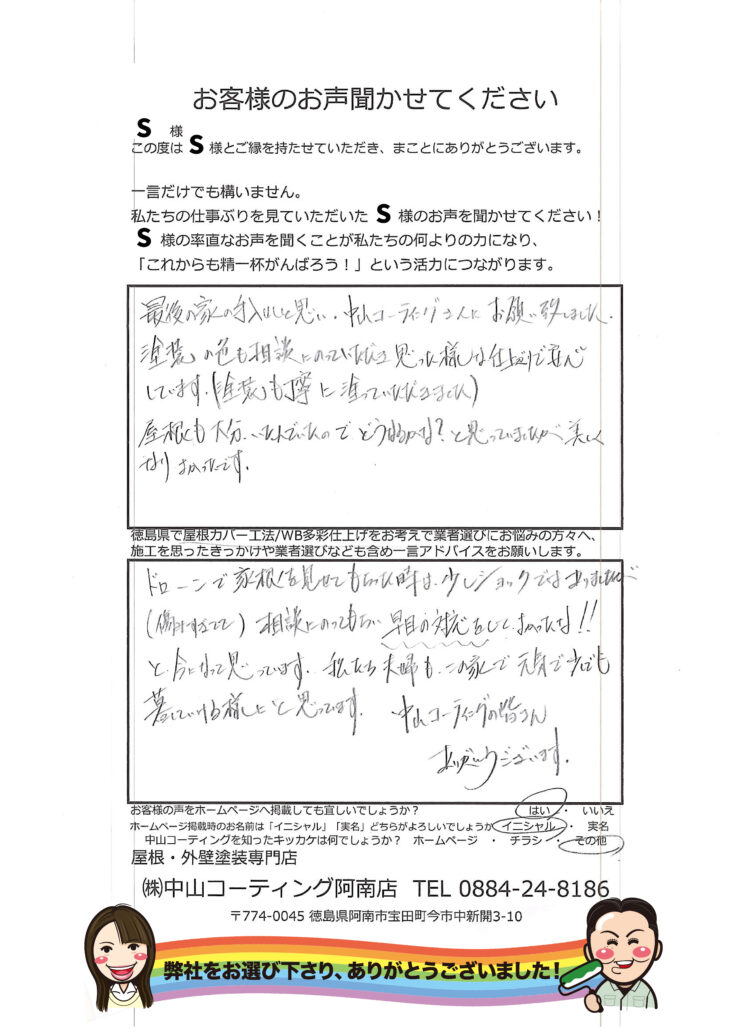 お客様のお声聞かせてください
S 様
この度は S 様とご縁を持たせていただき、まことにありがとうございます。
一言だけでも構いません。
私たちの仕事ぶりを見ていただいた S 様のお声を聞かせてください！
S 様の率直なお声を聞くことが私たちの何よりの力になり、
「これからも精一杯がんばろう！」という活力につながります。
最後の家の手入れと思い、中山コーティングさんにお願い致しました。
塗装の色も相談にのっていただき思った様な仕上りで喜んで
しています。(塗装も丁寧に塗っていただきました)
屋根も大分いたんでいたのでどうなるかな？と思っていましたが美しく
なりよかったです。
徳島県で屋根カバー工法/WB多彩仕上げをお考えで業者選びにお悩みの方々へ、
施工を思ったきっかけや業者選びなども含め一言アドバイスをお願いします。
ドローンで家根を見せてもらった時は、少しショックではありましたが
相談にのってもらい早目の対応をしてよかったな!!
と今になって思っています。私たち夫婦も、この家で元気で少しでも
暮していける様にと思っています。中山コーティングの皆さん
ありがとうございます。
お客様の声をホームページへ掲載しても宜しいでしょうか？ はい ・ いいえ
ホームページ掲載時のお名前は「イニシャル」「実名」どちらがよろしいでしょうか イニシャル ・ 実名
中山コーティングを知ったキッカケは何でしょうか？ ホームページ ・ チラシ ・ その他
屋根・外壁塗装専門店
㈱中山コーティング阿南店 TEL 0884-24-8186
〒774-0045 徳島県阿南市宝田町今市中新開3-10
弊社をお選び下さり、ありがとうございました！